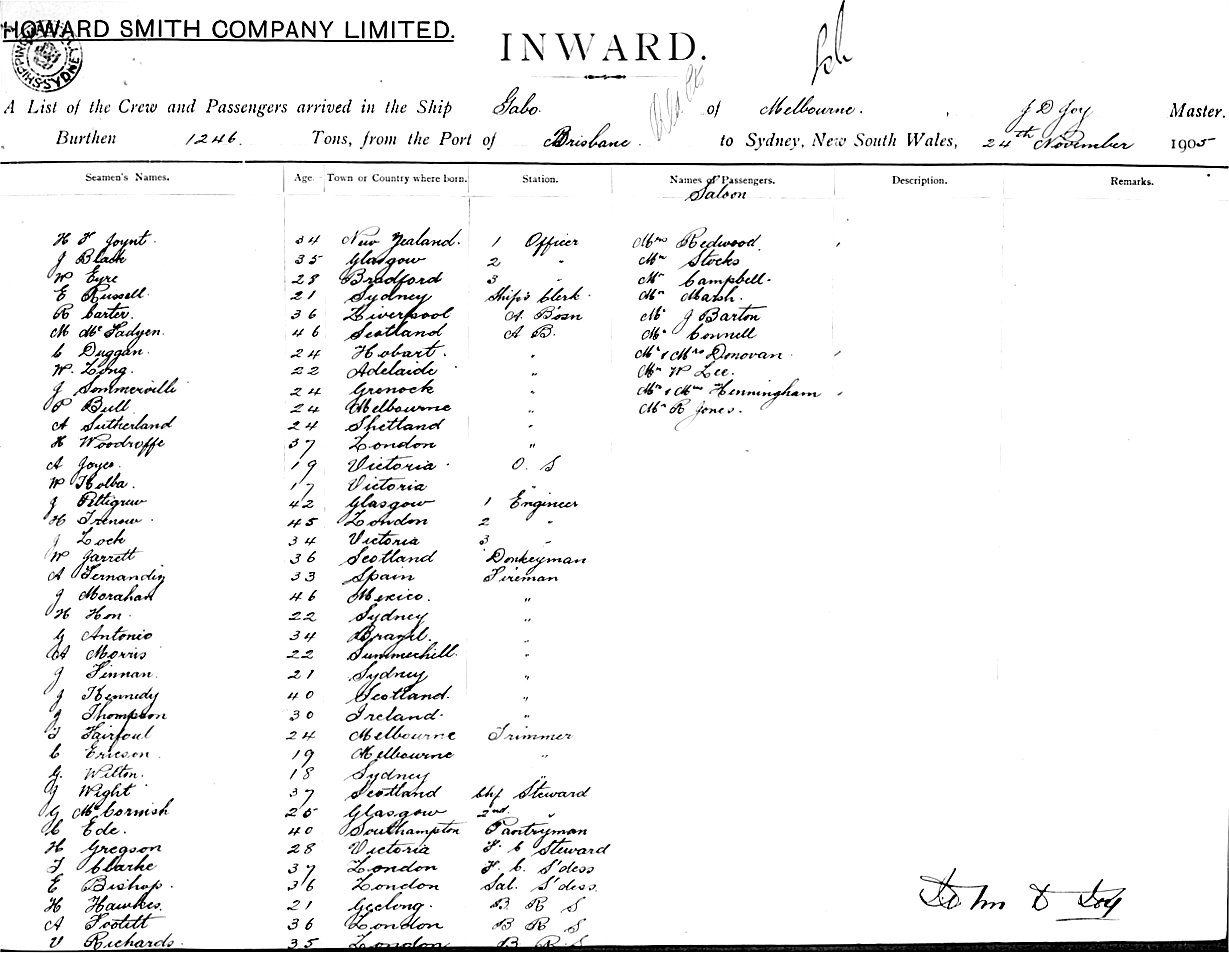 HOWARD SMITH COMPANY LIMITED.
INWARD.
SHIPPING
SYDNEY
A List of the Crew and Passengers arrived in the Ship Gabo. of Melbourne. J D Joy Master.
Burthen 1246. Tons, from the Port of Brisbane. to Sydney, New South Wales, 24th November 1905
Seamen's Names. Age. Town or Country where born. Station. Names of Passengers. Description. Remarks.
Saloon
H F Joynt. 34 New Zealand. 1 Officer Mrs Redwood
J Black 35 Glasgow 2 " Mr Stocks
W Eyre 28 Bradford 3 " Mr Campbell.
E Russell. 21 Sydney Ship's Clerk. Mr Marsh.
R Carter. 36 Liverpool A. Bosn Mr J Barton
M McFadyen 46 Scotland A B. Mr Connell
C Duggan. 24 Hobart. " Mr & Mrs Donovan
W. Long. 22 Adelaide " Mr W Lee.
J Sommerville 24 Grenock " Mr & Mrs Henningham
P Bull 24 Melbourne " Mr R Jones.
A Sutherland 24 Shetland "
H Woodroffe 37 London "
A Joyce. 19 Victoria O. S
W Holba. 17 Victoria "
J Pettigrew 42 Glasgow 1 Engineer
H Trenow. 45 London 2 "
J Lock 34 Victoria 3 "
W Jarrett 36 Scotland Donkeyman
A Fernandin 33 Spain Fireman
J Morahan 46 Mexico. "
H Hon. 22 Sydney "
G Antonio 34 Brazil. "
A Morris 22 Summerhill. "
J Finnan. 21 Sydney "
J Kennedy 40 Scotland. "
J Thompson 30 Ireland. "
J Fairfoul 24 Melbourne Trimmer
C Ericson. 19 Melbourne "
G. Wilton. 18 Sydney "
J Wight 37 Scotland Chf Steward
G McCormish 25 Glasgow 2nd. "
C Ede. 40 Southampton Pantryman
H Gregson 28 Victoria F. C Steward
F Clarke 37 London F. C. S'dess
E Bishop. 36 London Sal. S'dess.
H Hawkes. 21 Geelong. B R S
A 36 London B R S
V Richards. 35 London B R S
John D Joy